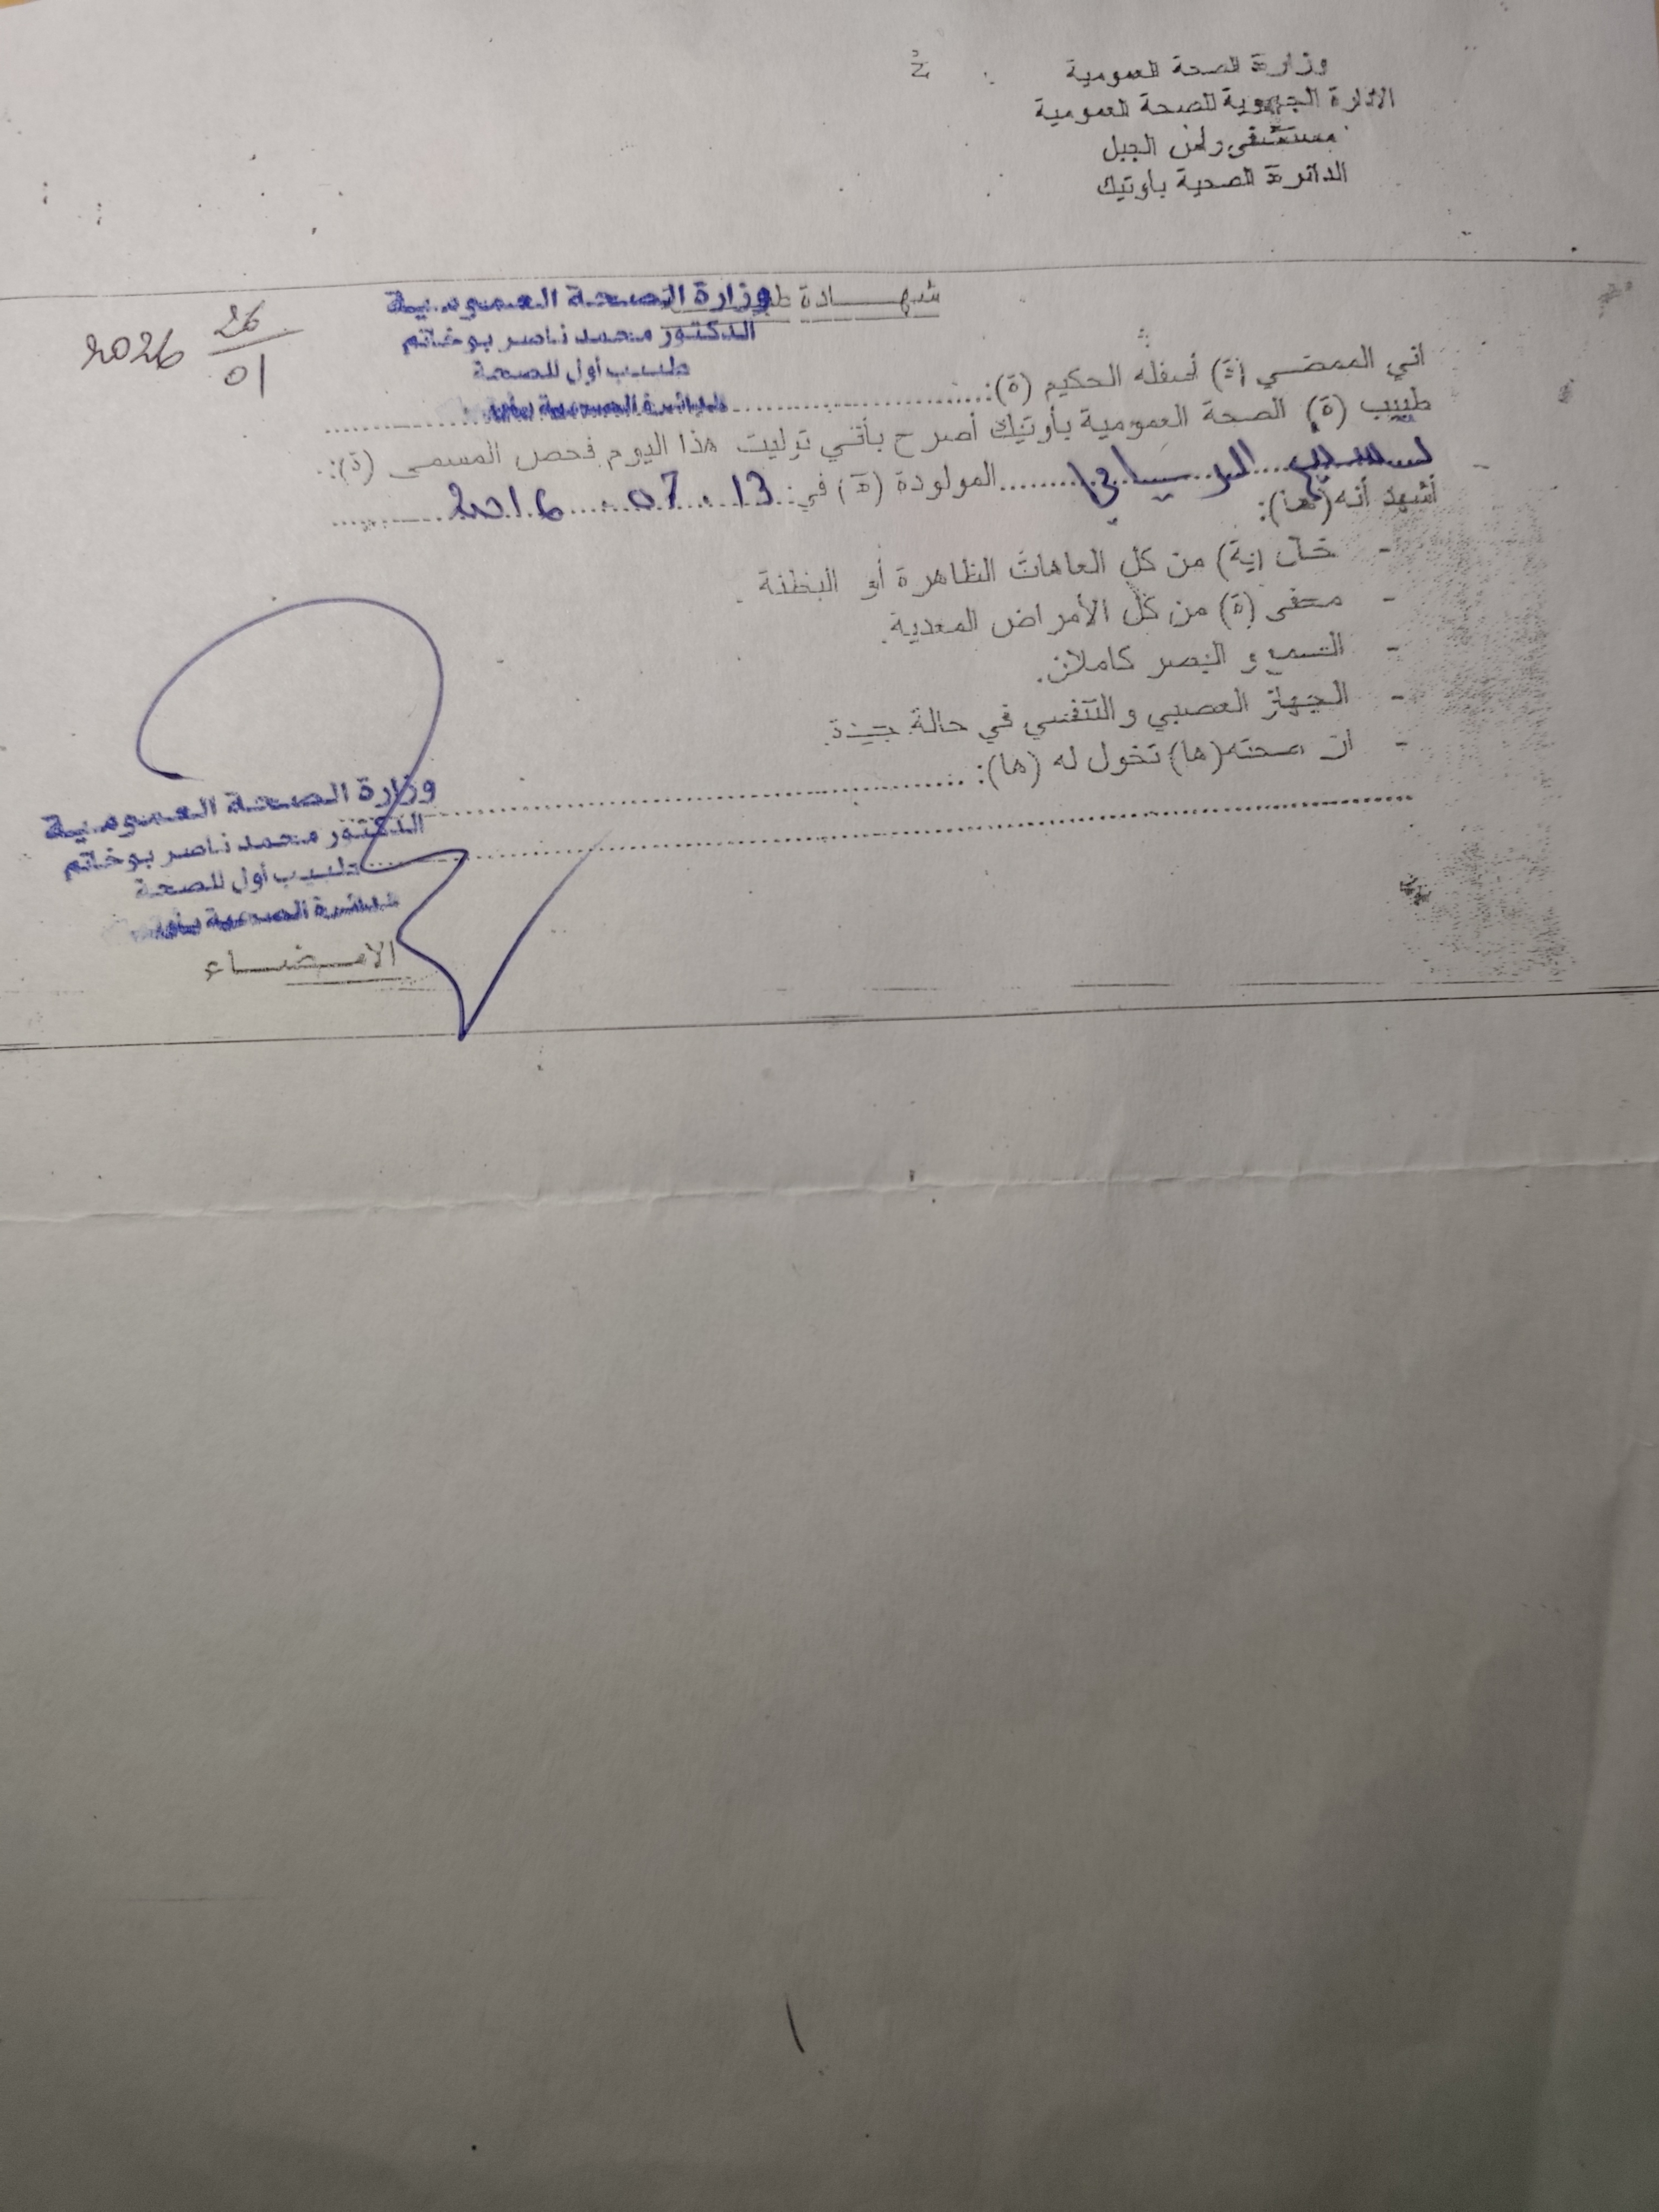 وزارة الصحة العمومية
الادارة الجهوية للصحة العمومية
مستشفى الجبل
الدائرة الصحية بأوتيك
شهـــــادة
وزارة الصحة العمومية
الدكتور محمد ناصر بوخاتم
طبيب أول للصحة
26
01
2026
اني الممضي (ة) أسفله الحكيم (ة):
طبيب (ة) الصحة العمومية بأوتيك أصرح بأنني توليت هذا اليوم فحص المسمى (ة):
المولودة (ة) في: 13 . 07 . 2016
أشهد أنه(ها):
- خال (ية) من كل العاهات الظاهرة أو
- معفى (ة) من كل الأمراض المعدية.
- السمع و البصر كاملان.
- الجهاز العصبي والتنفسي في حالة جيدة.
- ان صحته(ها) تخول له (ها):
وزارة الصحة العمومية
الدكتور محمد ناصر بوخاتم
طبيب أول للصحة
الامـــضـــاء